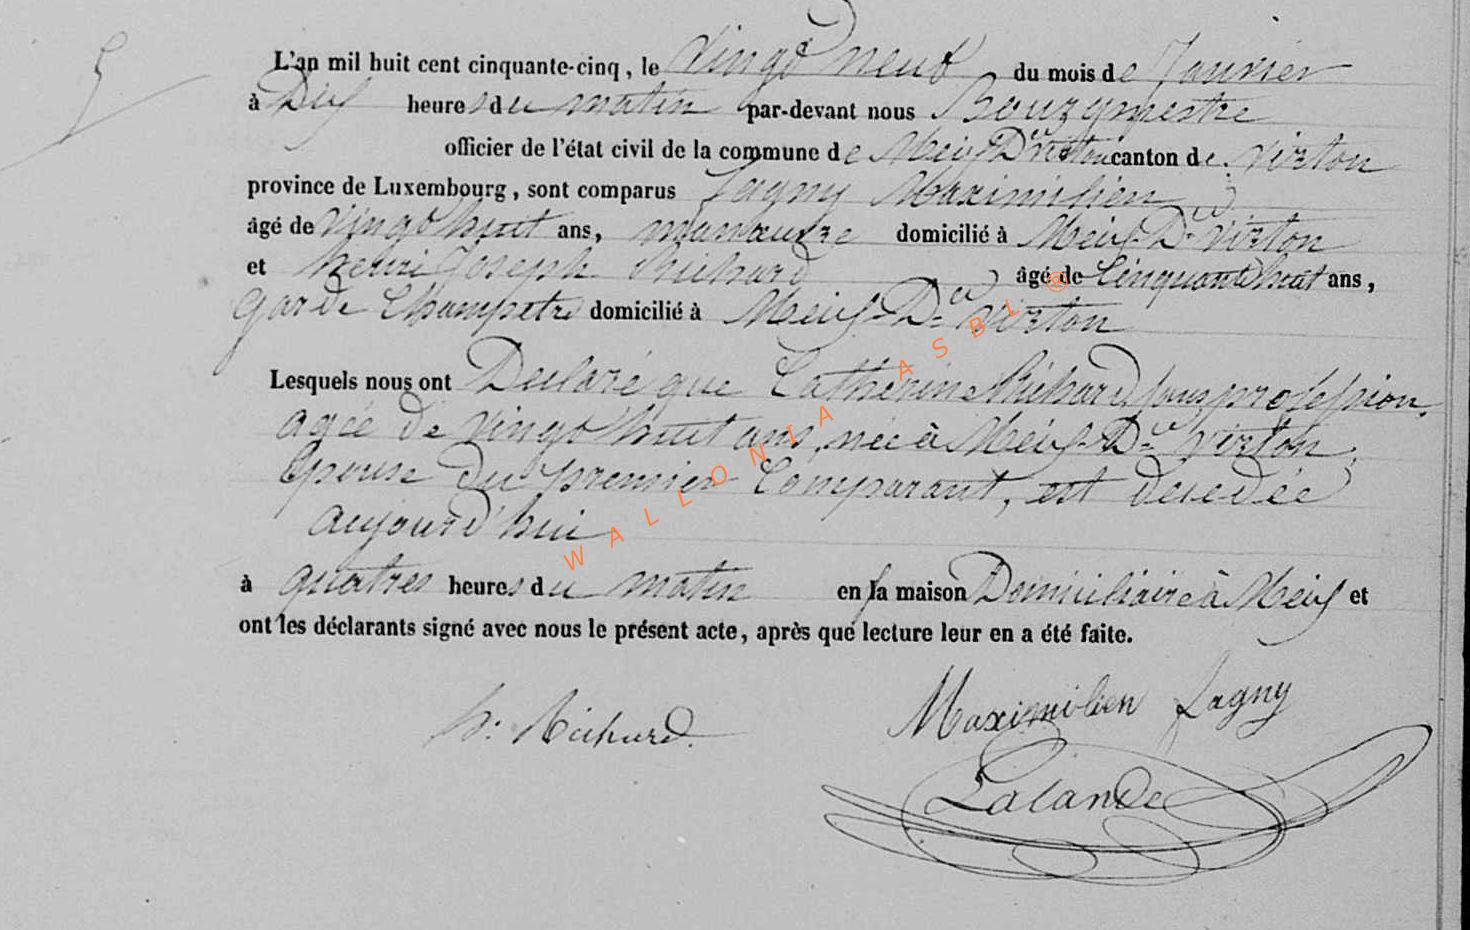 5
L'an mil huit cent cinquante-cinq, le Vingt neuf du mois de Janvier
à Dix heures du matin par-devant nous Bourgmestre
officier de l'état civil de la commune de Meix Dt Virton canton de Virton
province de Luxembourg, sont comparus Fagny Maximilien
âgé de Vingt huit ans, manœuvre domicilié à Meix-Dt Virton
et henri Joseph Richard âgé de Cinquante huit ans,
garde Champetre domicilié à Meix-Dt Virton
Lesquels nous ont Declaré que Catherine Richard sans profession,
agée de Vingt huit ans, née à Meix-Dt Virton,
Epouse du premier Comparant, est decedée
aujourd'hui
à quatres heures du matin en sa maison Domiciliaire à Meix et
ont les déclarants signé avec nous le présent acte, après que lecture leur en a été faite.
h. Richard Maximilien Fagny
Lalande
WALLONIA ASBL ®